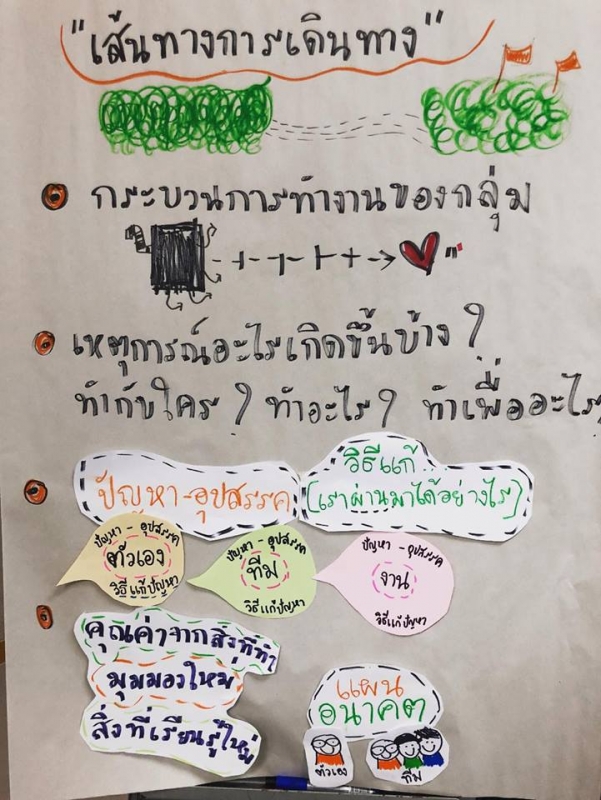 "เส้นทางการเดินทาง"
กระบวนการทำงานของกลุ่ม
เหตุการณ์อะไรเกิดขึ้นบ้าง ?
ทำกับใคร ? ทำอะไร ? ทำเพื่ออะไร
ปัญหา-อุปสรรค
วิธีแก้
(เราผ่านมาได้อย่างไร)
ปัญหา - อุปสรรค
ตัวเอง
วิธีแก้ปัญหา
ปัญหา - อุปสรรค
ทีม
วิธีแก้ปัญหา
ปัญหา - อุปสรรค
งาน
วิธีแก้ปัญหา
คุณค่าจากสิ่งที่ทำ
มุมมองใหม่
สิ่งที่เรียนรู้ใหม่
แผน
อนาคต
ตัวเอง
ทีม